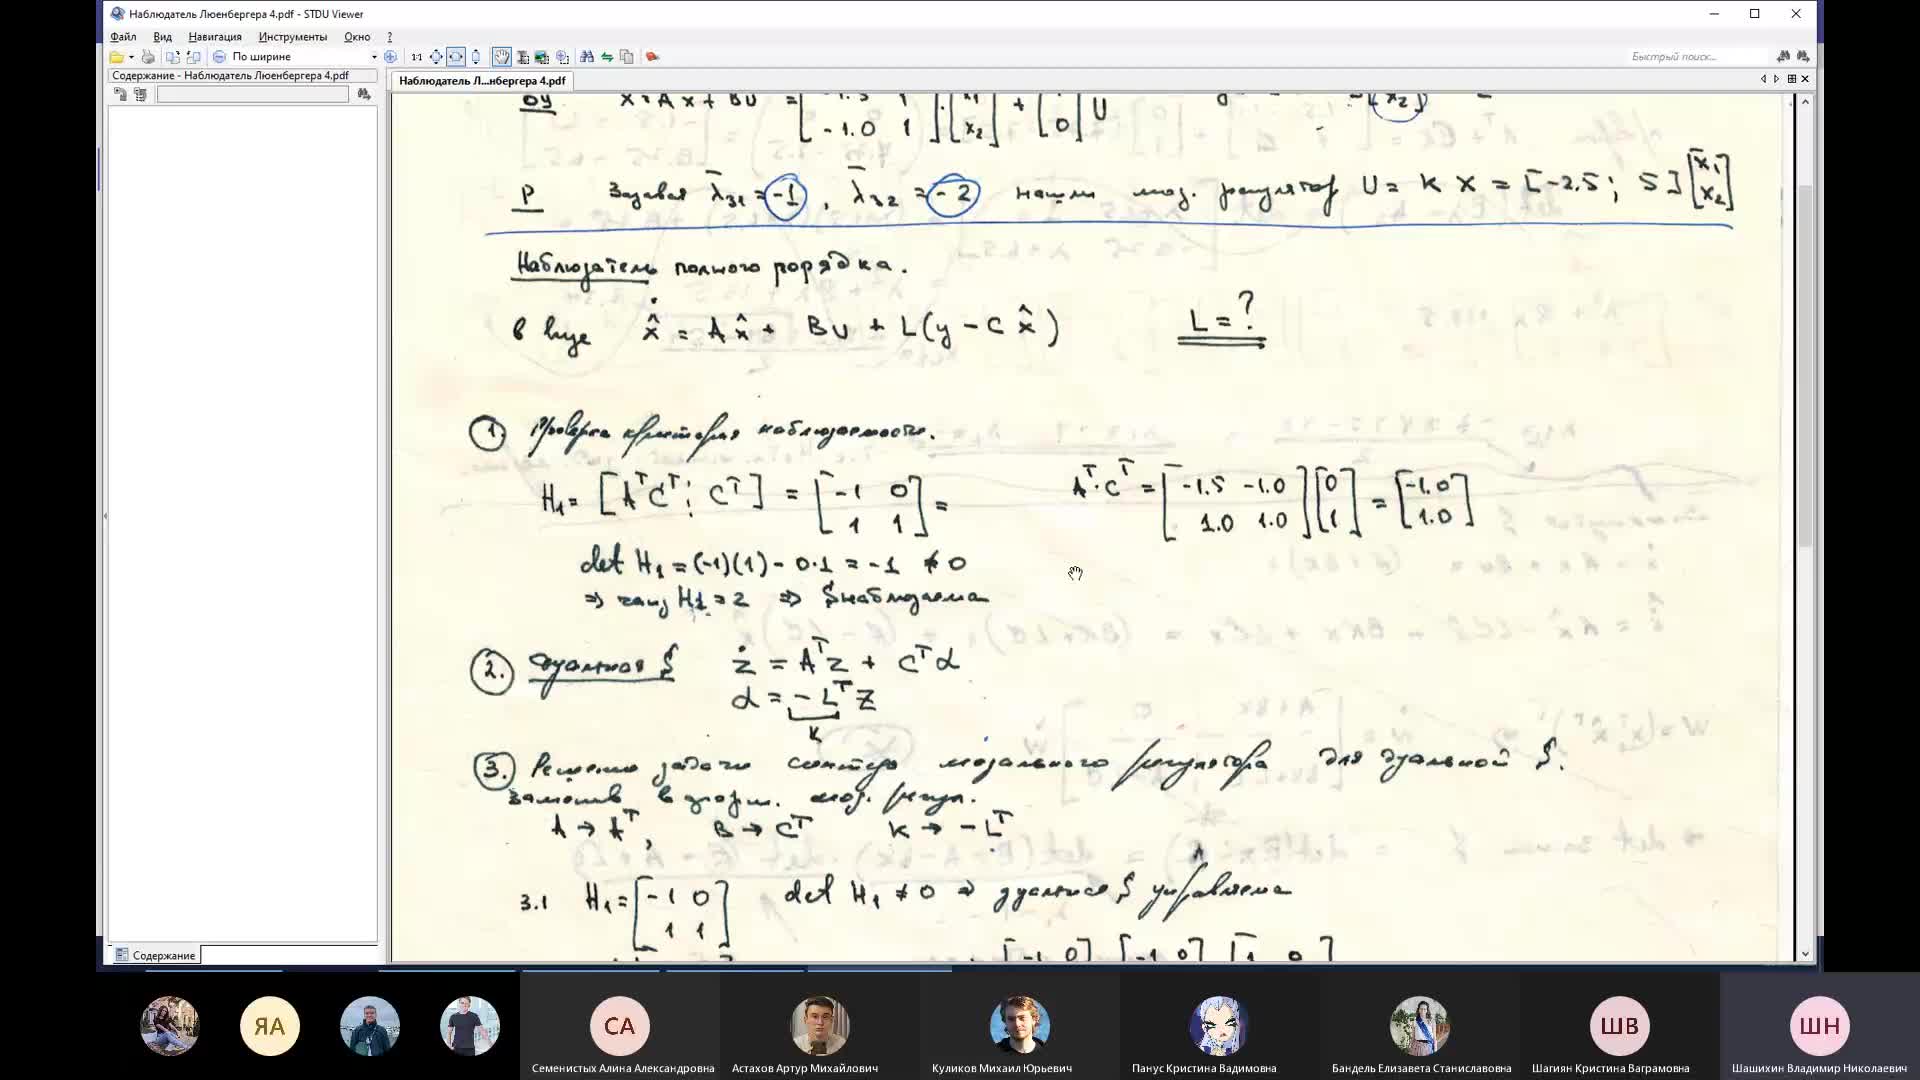 Наблюдатель Люенбергера 4.pdf - STDU Viewer
Файл Вид Навигация Инструменты Окно ?
По ширине 1:1 Быстрый поиск...
Содержание - Наблюдатель Люенбергера 4.pdf
Наблюдатель Л...нбергера 4.pdf
ОУ ẋ = Ax + BU =
-1.0 1 x₂ + 0 U x₂
P Задавая λ̄₃₁ = -1, λ̄₃₂ = -2 нашли мод. регулятор U = K X = [-2.5; 5] [x₁ x₂]
Наблюдатель полного порядка.
в виде x̂̇ = A x̂ + BU + L(y - C x̂) L = ?
1. Проверка критерия наблюдаемости.
H₁ = [AᵀCᵀ ⋮ Cᵀ] = [-1 0 AᵀCᵀ = [-1.5 -1.0] [0] = [-1.0]
1 1] = [1.0 1.0] [1] [1.0]
det H₁ = (-1)(1) - 0·1 = -1 ≠ 0
⇒ rang H1 = 2 ⇒ S наблюдаема
2. Дуальная S ż = Aᵀz + Cᵀα
α = -LᵀZ
K
3. Решено задачи синтеза модального регулятора для дуальной S.
заменив в мод. регул.
A → Aᵀ, B → Cᵀ K → -Lᵀ
3.1 H₁ = [-1 0 det H₁ ≠ 0 ⇒ дуальная S управляема
1 1]
[-1 0] [-1 0] [1 0]
Содержание
ЯА
СА
ШВ
ШН
Семенистых Алина Александровна
Астахов Артур Михайлович
Куликов Михаил Юрьевич
Панус Кристина Вадимовна
Бандель Елизавета Станиславовна
Шагиян Кристина Ваграмовна
Шашихин Владимир Николаевич